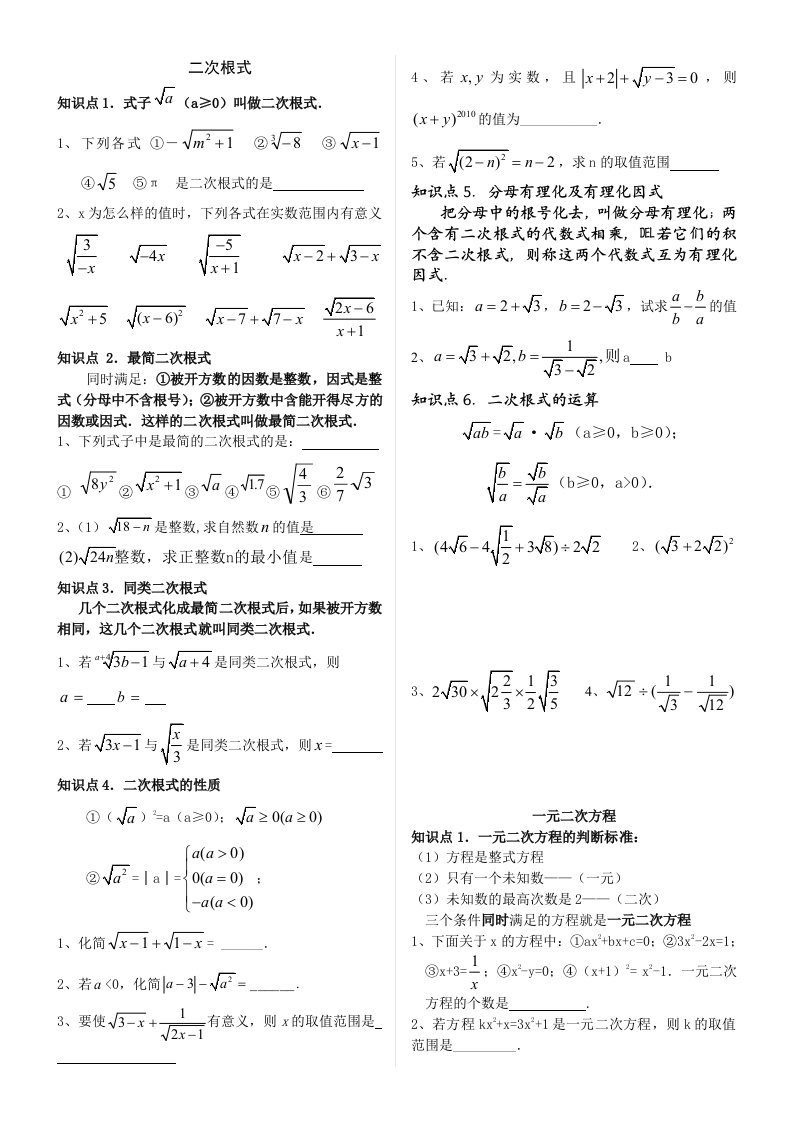 二次根式
知识点 1．式子 √a （a≥0）叫做二次根式．
1、下列各式 ①－√(m²+1)  ②∛−8  ③ √(x−1)
④√5  ⑤π  是二次根式的是
2、x 为怎么样的值时，下列各式在实数范围内有意义
√(3/−x)  √(−4x)  √(−5/(x+1))  √(x−2)+√(3−x)
√(x²+5)  √((x−6)²)  √(x−7)+√(7−x)  √(2x−6)/(x+1)
知识点 2．最简二次根式
同时满足：①被开方数的因数是整数，因式是整
式（分母中不含根号）；②被开方数中含能开得尽方的
因数或因式．这样的二次根式叫做最简二次根式．
1、下列式子中是最简的二次根式的是：
① √(8y²) ② √(x²+1) ③ √a ④ √1.7 ⑤ √(4/3) ⑥ 2/7 √3
2、（1）√(18−n) 是整数,求自然数 n 的值是
(2) √(24n)整数，求正整数n的最小值是
知识点 3．同类二次根式
几个二次根式化成最简二次根式后，如果被开方数
相同，这几个二次根式就叫同类二次根式．
1、若 ᵃ⁺⁴√(3b−1) 与 √(a+4) 是同类二次根式，则
a = ___ b = ___
2、若 √(3x−1) 与 √(x/3) 是同类二次根式，则 x =
知识点 4．二次根式的性质
①（√a）²=a（a≥0）； √a ≥ 0(a ≥ 0)
② √a² =∣a∣={a(a > 0) 0(a = 0) −a(a < 0) ；
1、化简 √(x−1)+√(1−x) = ______．
2、若 a <0，化简 |a−3|−√a² = ______．
3、要使 √(3−x) + 1/√(2x−1) 有意义，则 x 的取值范围是_
4、若 x, y 为实数，且 |x+2|+√(y−3)=0 ，则
(x+y)²⁰¹⁰ 的值为___________．
5、若 √((2−n)²) = n−2，求 n 的取值范围
知识点 5．分母有理化及有理化因式
把分母中的根号化去，叫做分母有理化；两
个含有二次根式的代数式相乘，若它们的积
不含二次根式，则称这两个代数式互为有理化
因式．
1、已知：a = 2+√3，b = 2−√3，试求 a/b − b/a 的值
2、a = √3+√2, b = 1/(√3−√2),则 a____ b
知识点 6．二次根式的运算
√ab = √a • √b （a≥0，b≥0）；
√(b/a) = √b/√a （b≥0，a>0）．
1、(4√6−4√(1/2)+3√8)÷2√2  2、(√3+2√2)²
3、2√30×√(2 2/3)×1/2 √(3/5)  4、√12÷(1/√3 − 1/√12)
一元二次方程
知识点 1．一元二次方程的判断标准：
（1）方程是整式方程
（2）只有一个未知数——（一元）
（3）未知数的最高次数是 2——（二次）
三个条件同时满足的方程就是一元二次方程
1、下面关于 x 的方程中：①ax²+bx+c=0；②3x²-2x=1；
③x+3=1/x；④x²-y=0；④（x+1）²= x²-1．一元二次
方程的个数是 ．
2、若方程 kx²+x=3x²+1 是一元二次方程，则 k 的取值
范围是_________．